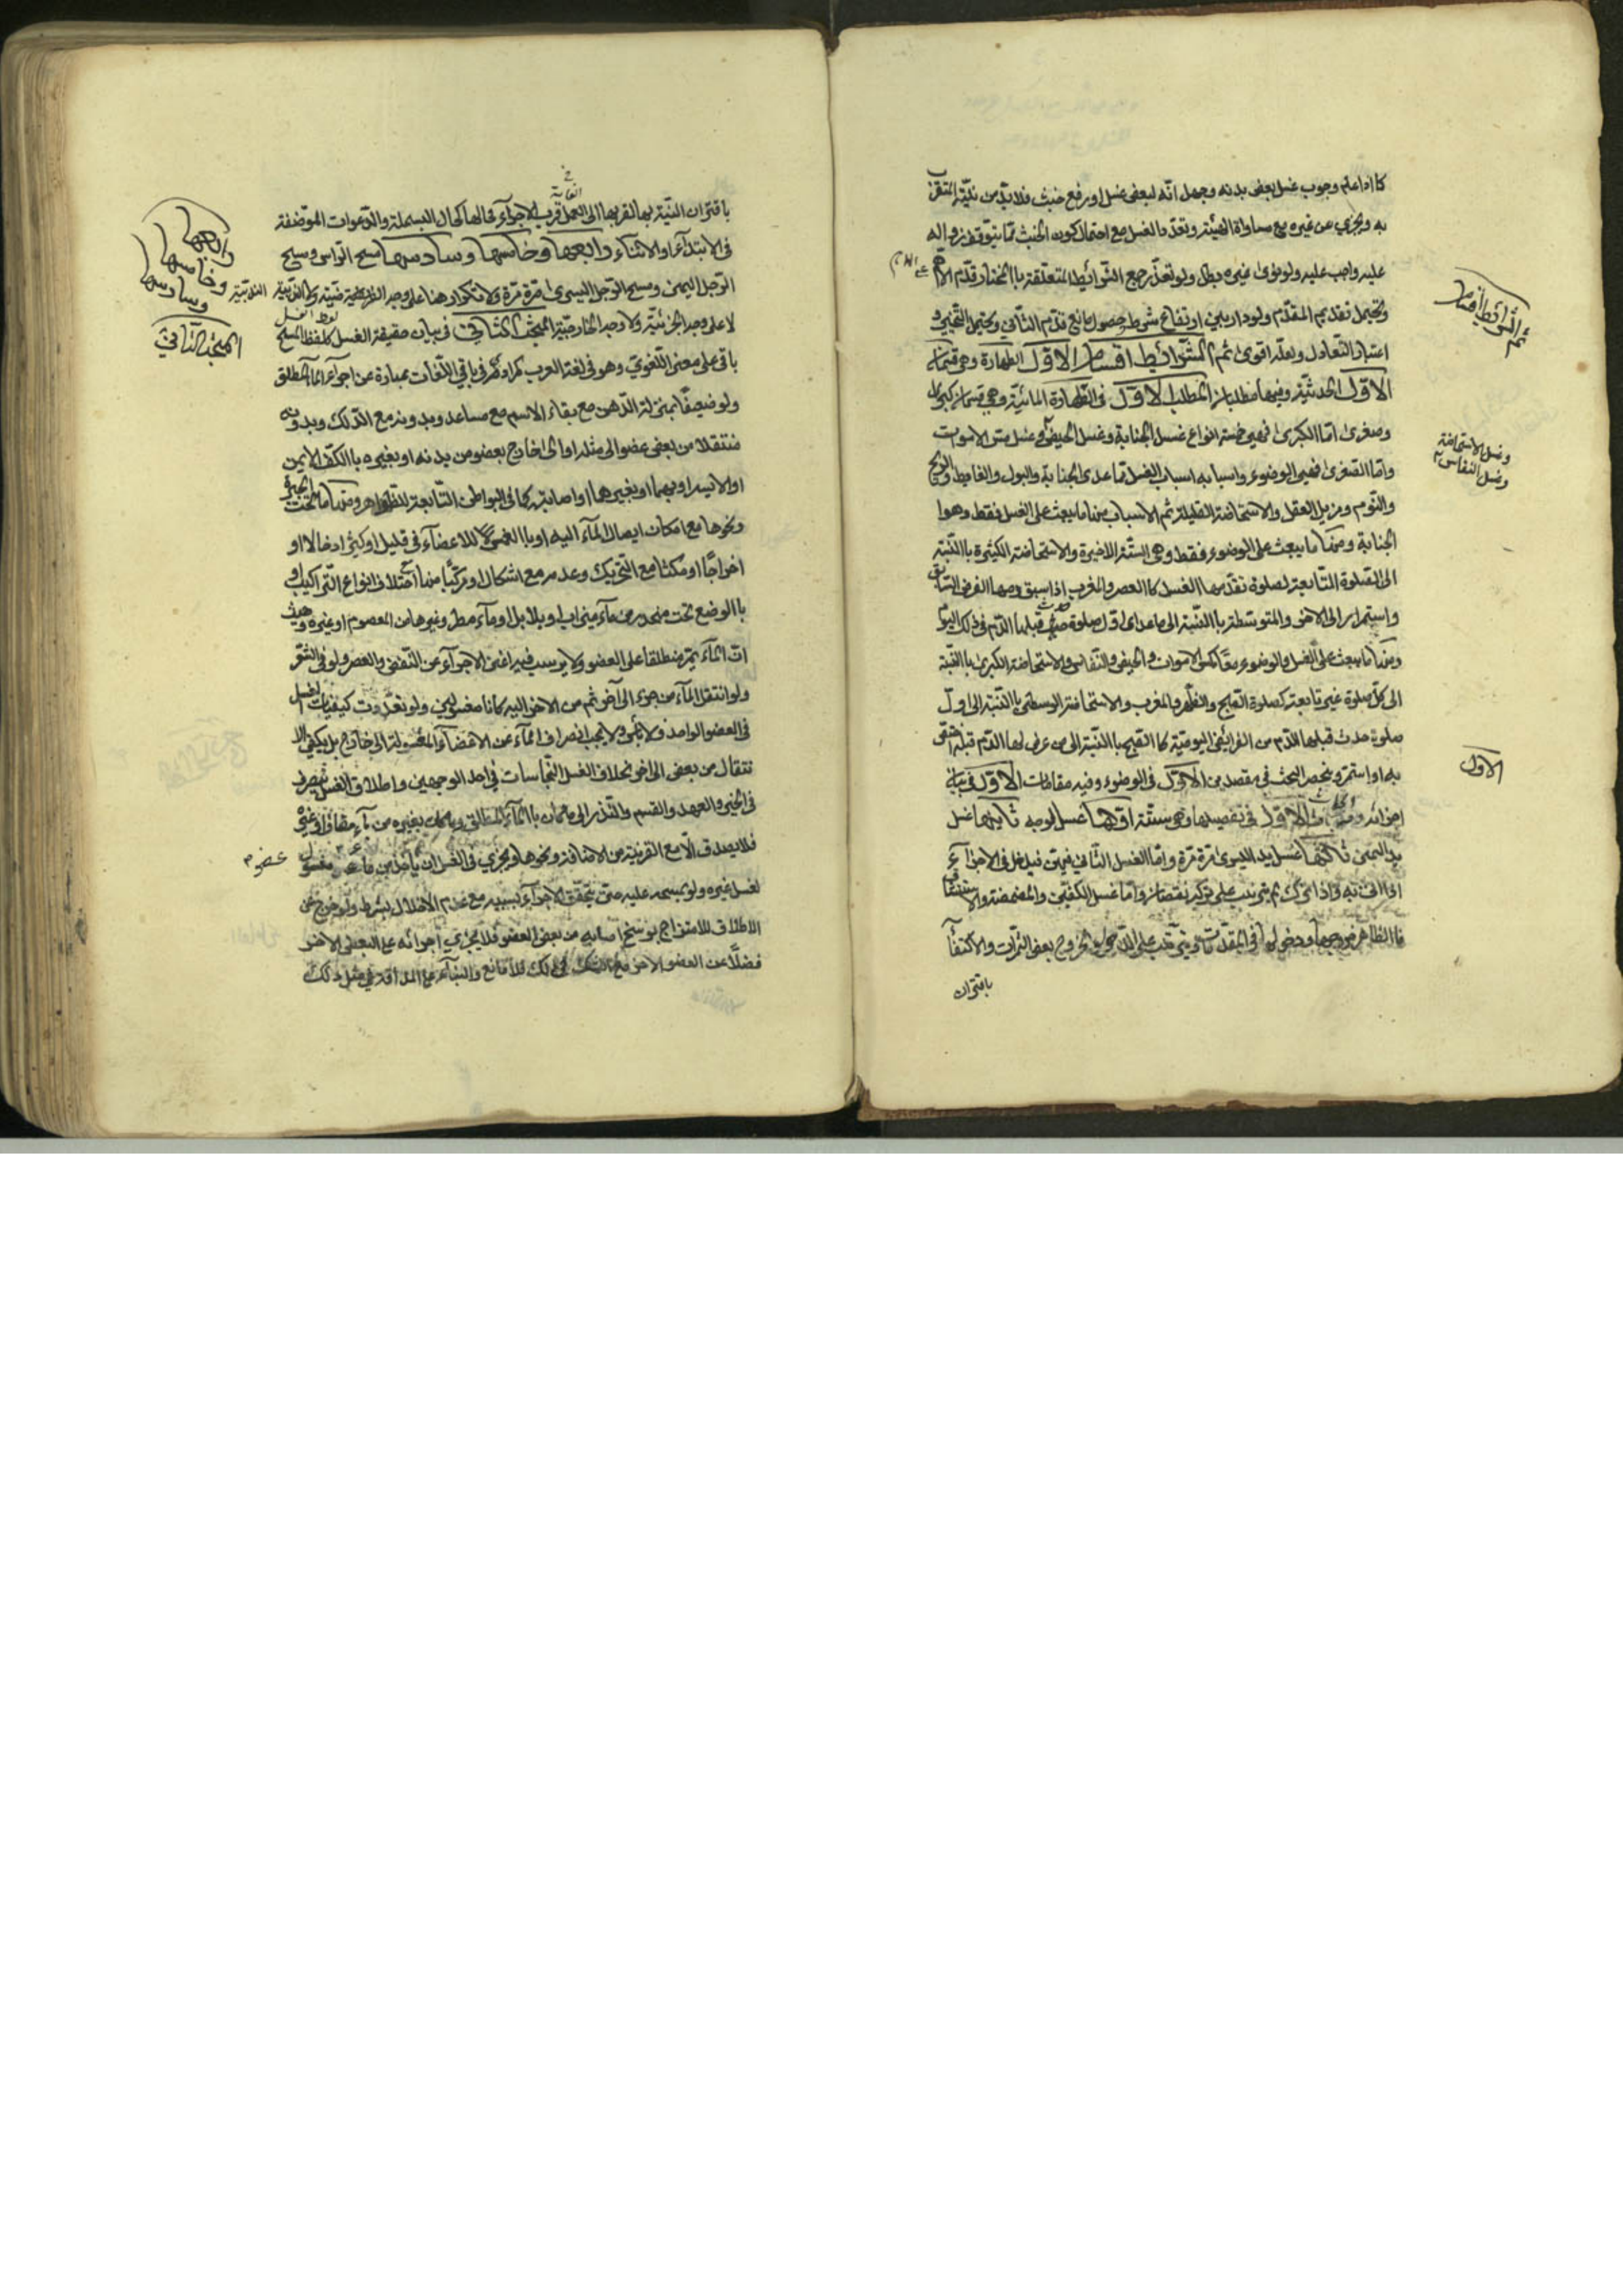 كما اذا علم وجوب غسل بعض بدنه وجهل انّه لبعض غسل او رفع خبث فلا بدّ من نيّة التقرّب
به ويجزي عن غيره مع مساواة الهيئة وتعدّد الغسل مع احتمال كون الخبث ممّا يتوقف زواله
عليه واجب عليه ولو نوى غيره بطل ولو تعذّر جمع الشّرائط المتعلقة باالمختار قدّم الاهمّ
ويحتمل تقديم المقدّم ولو دار بين ارتفاع شرط وحصول مانع قدّم الثّاني ويحتمل التخيير و
اعتبار التّعادل ولعلّه اقوى ثم الشّرائط اقسام الاوّل الطهارة وهي قسمان
الاوّل الحدثيّة وفيها مطلبان المطلب الاوّل في الطّهارة المائيّة وهي قسمان كبرى
وصغرى امّا الكبرى فهي خمسة انواع غسل الجنابة وغسل الحيض وغسل مسّ الاموات
وامّا الصّغرى فهي الوضوء واسبابه اسباب الغسل ممّا عدى الجنابة والبول والغايط والرّيح
والنّوم ومزيل العقل والاستحاضة القليلة ثم الاسباب منها ما يبعث على الغسل فقط وهوا
الجنابة ومنها ما يبعث على الوضوء فقط وهي الستّة الاخيرة والاستحاضة الكثيرة باالنّسبة
الى الصّلوة التّابعة لصلوة تقدّمها الغسل كاالعصر والمغرب اذا سبق ومها الفرض السّابق
واستمرار الى الاخر والمتوسّطة باالنّسبة الى ما عدى اوّل صلوة قبلها الدّم في ذلك اليوم
ومنها ما يبعث على الغسل والوضوء معًا كمسّ الاموات والحيض والنّفاس والاستحاضة الكبرى باالنّسبة
الى كلّ صلوة غير تابعة كصلوة الصّبح والظّهر والمغرب والاستحاضة الوسطى باالنّسبة الى اوّل
صلوة حدث قبلها الدّم من الفرائض اليوميّة كاالصّبح باالنّسبة الى من عرض لها الدّم قبله
به او استمرّ وينحصر البحث في مقصدين الاوّل في الوضوء وفيه مقامات الاوّل في بيان
اجزائه الاوّل في تفصيلها وهي ستّة اوّلها غسل الوجه ثانيها غسل
يد اليمنى ثالثها غسل يد اليسرى مرّة مرّة وامّا الغسل الثّاني فيدخل في الاجزاء
اذا اتى به واذا ترك لم يترتب على تركه نقصان وامّا غسل الكفّين والمضمضة والاستنشاق
فاالظاهر خروجها ودخولها في المقدّمات بعض الثمرات والاكتفاء
باقتران
ثم الشّرائط اقسام
وغسل الاستحاضة
وغسل النفاس
الاول
باقتران النيّة بها لقربها الى العمل قرب الاجزاء فحالها كحال البسملة والدّعوات الموّضفة
في الابتداء او الاثناء ورابعها وخامسها وسادسها مسح الرّاس ومسح
الرّجل اليمنى ومسح الرّجل اليسرى مرّة مرّة ولا تكرار هنا على وجه الفريضيّة
لا على وجه الجزئيّة ولا وجه الخارجيّة المبحث الثّاني في بيان حقيقة الغسل كلفظ المسح
باقي على معنى اللّغوي وهو في لغة العرب في باقي اللّغات عبارة عن اجراء الماء المطلق
ولو ضعيفًا بمنزلة الدّهن مع بقاء الاسم مع مساعد وبدونه مع الدّلك وبدونه
منتقلا من بعض عضو الى مثله او الى خارج بعضو من بدنه او بغيره باالكفّ الايمن
او الايسر او بهما او بغيرهما او اصابة كما في البواطن التّابعة للظّواهر ومنها ما تحت الجبيرة
ونحوها مع امكان ايصال الماء اليه او باالغمس للاعضاء في قليل او كثير ادخالا او
اخراجًا او مكثا مع التحريك وعدمه مع اشكال او مركّبًا منها مع اختلاف انواع التّراكيب او
باالوضع تحت منحدر من ماء ميزاب او بلابل او ماء مطر وغيرها من المعصوم او غيره وحيث
انّ الماء يمرّ منطلقا على العضو ولا يرسب فيه اغنى الاجراء عن النّفض والعصر ولو في الشّعر
ولو انتقل الماء من جزء الى آخر ثم من الاخر اليه كانا مغسولين ولو تعدّدت كيفيات الغسل
في العضو الواحد فلا باس ولا يجب انصراف الماء عن الاعضاء المغسولة الى خارج بل يكفي الا
نتقال من بعض الى اخر بخلاف الغسل النّجاسات في احد الوجهين واطلاق الغسل ينصرف
في الخبر والعهد والقسم والنّذر الى ما كان باالماء المطلق وما كان بغيره من ماء مضاف او غيره
فلا يصدق الّا مع القرينة من الاضافة ونحوها ويجزي في الغسل ان ياخذ من ماء مغسول
لغسل غيره ولو بمسحه عليه حتى يتحقّق الاجراء بسببه مع عدم الاخلال بشرط ولو خرج عن
الاطلاق للامتزاج بوسخ اصابه من بعض العضو فلا يجزي اجرائه على البعض الاخر
فضلًا عن العضو الاخر مع الشك في ذلك فلا مانع والبناء على المداقة في مثل ذلك
رابعها
وخامسها
وسادسها
المبحث الثّاني
عضو